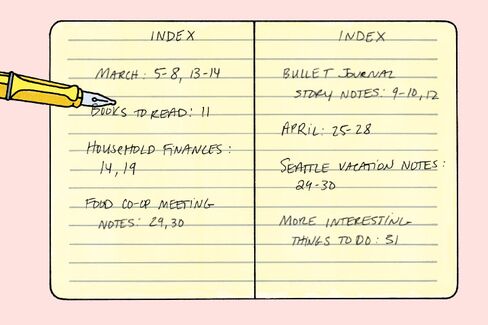 INDEX
MARCH: 5-8, 13-14
BOOKS TO READ: 11
HOUSEHOLD FINANCES:
14, 19
FOOD CO-OP MEETING
NOTES: 29, 30
INDEX
BULLET JOURNAL
STORY NOTES: 9-10, 12
APRIL: 25-28
SEATTLE VACATION NOTES:
29-30
MORE INTERESTING
THINGS TO DO: 31